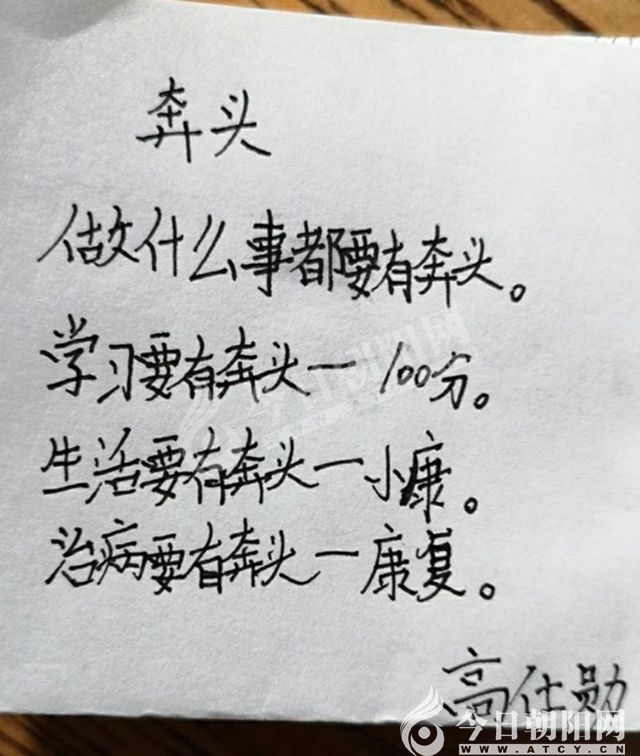 奔头
做什么事都要有奔头。
学习要有奔头一100分。
生活要有奔头一小康。
治病要有奔头一康复。
高仕勋
今日朝阳网
今日朝阳网
WWW.ATCY.CN